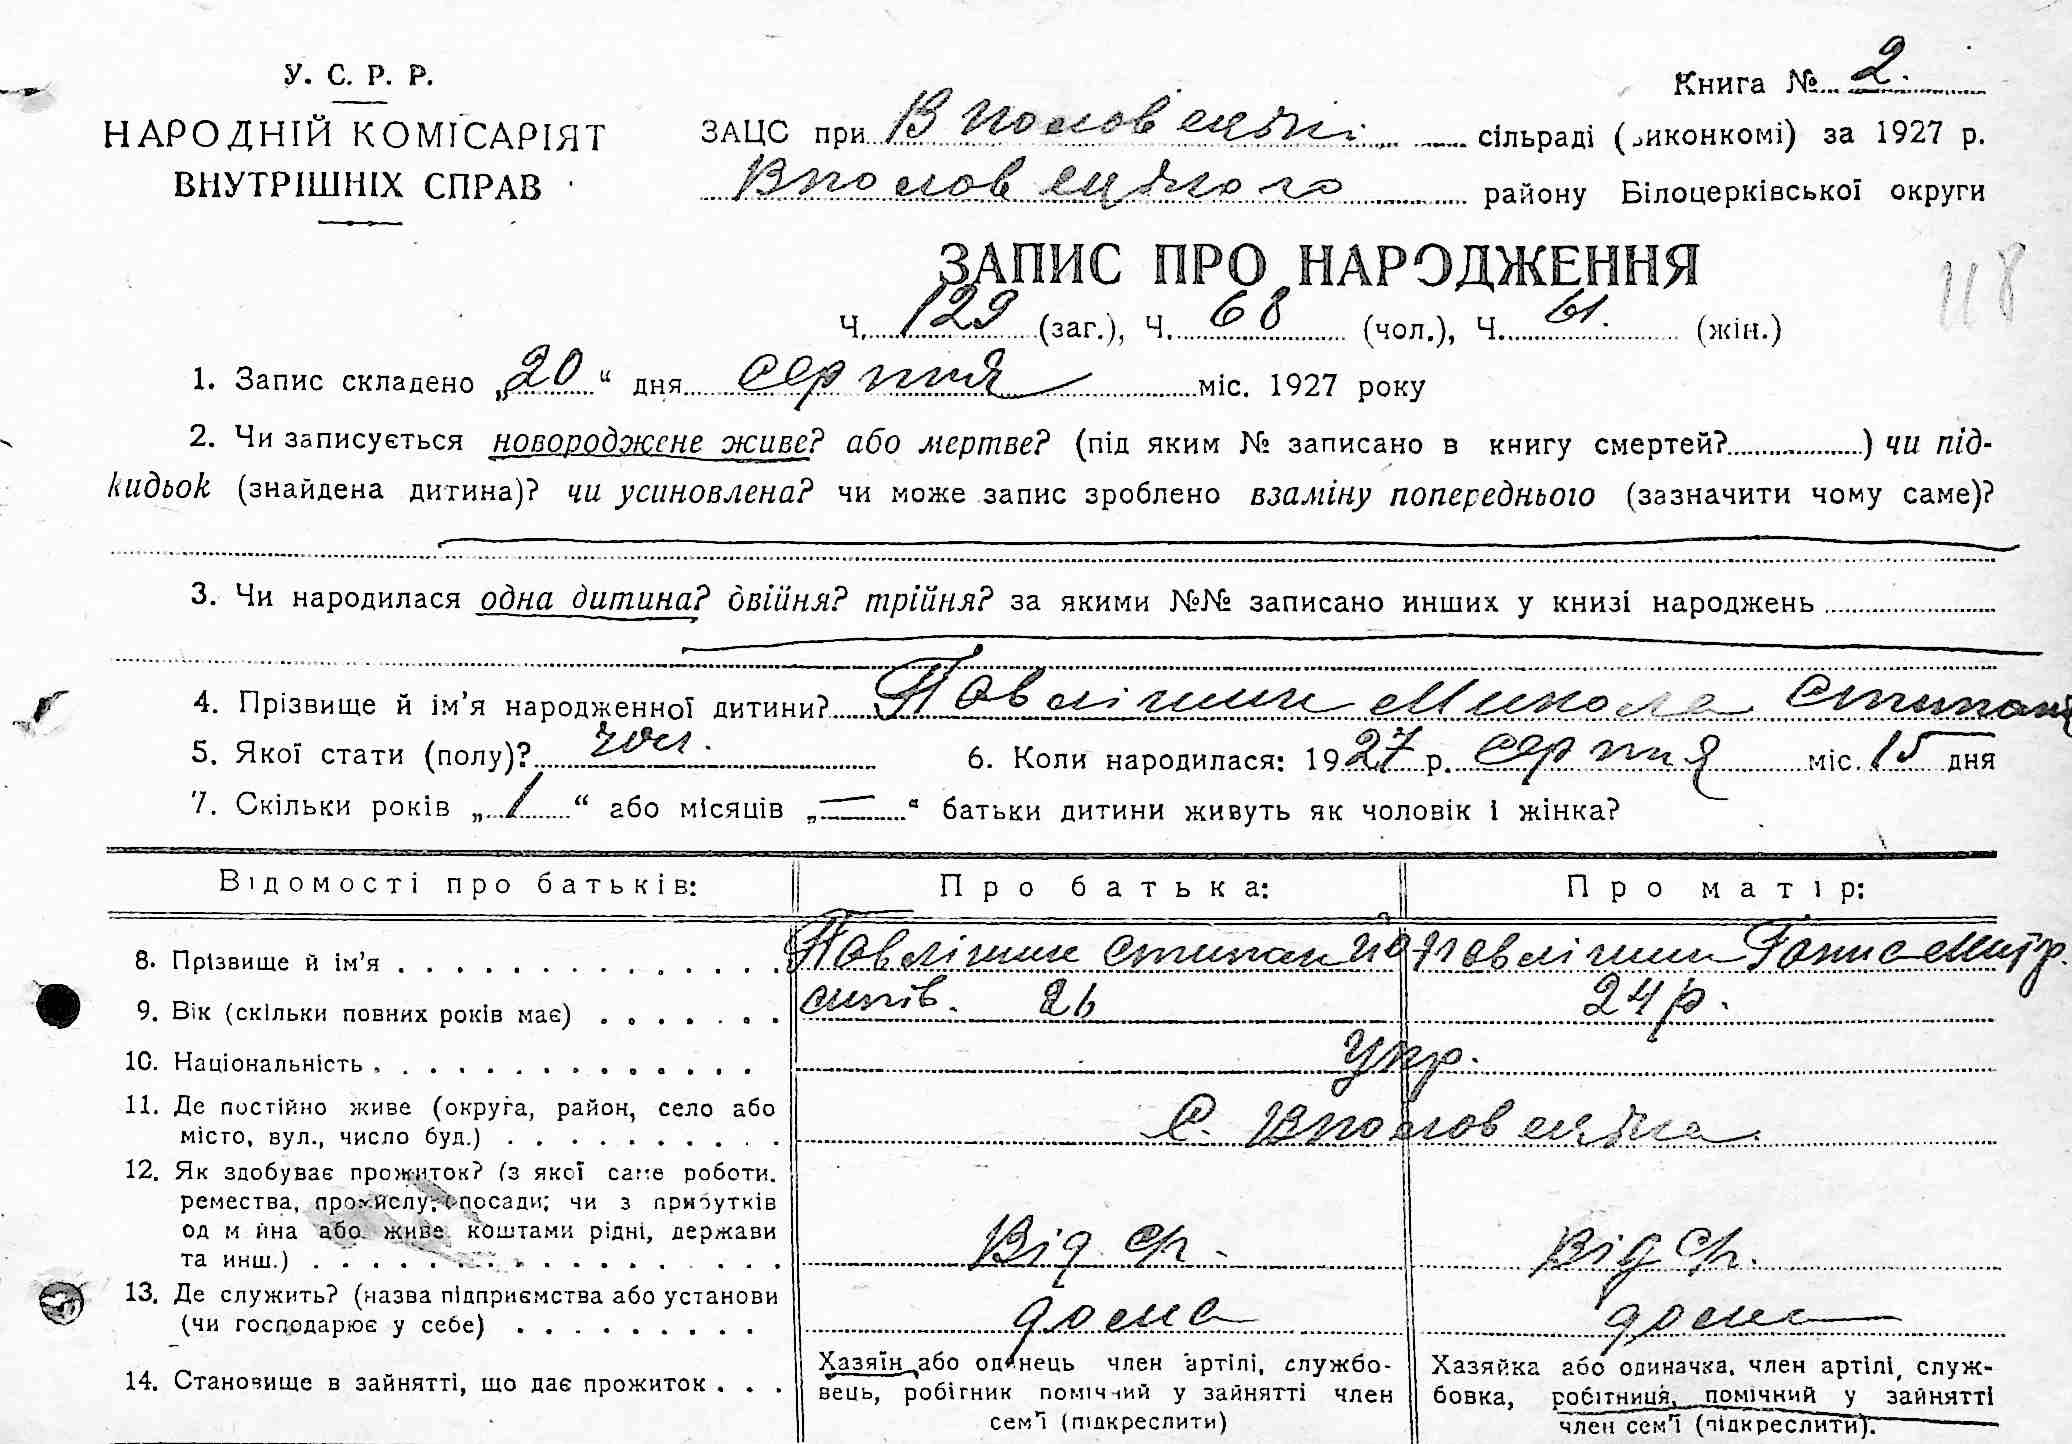 У. С. Р. Р.
НАРОДНІЙ КОМІСАРІЯТ
ВНУТРІШНІХ СПРАВ
Книга № 2.
ЗАЦС при Вполовецькі сільраді (виконкомі) за 1927 р.
Вполовецького району Білоцерківської округи
ЗАПИС ПРО НАРОДЖЕННЯ
118
Ч. 129 (заг.), Ч. 68 (чол.), Ч. 61. (жін.)
1. Запис складено „20“ дня серпня міс. 1927 року
2. Чи записується новороджене живе? або мертве? (під яким № записано в книгу смертей?) чи під-
кидьок (знайдена дитина)? чи усиновлена? чи може запис зроблено взаміну попереднього (зазначити чому саме)?
3. Чи народилася одна дитина? двійня? трійня? за якими №№ записано инших у книзі народжень
4. Прізвище й ім’я народженної дитини? Микола
5. Якої стати (полу)? чол. 6. Коли народилася: 1927 р. серпня міс. 15 дня
7. Скільки років „1“ або місяців „—“ батьки дитини живуть як чоловік і жінка?
Відомості про батьків: Про батька: Про матір:
8. Прізвище й ім’я
9. Вік (скільки повних років має) 26 24 р.
10. Національність Укр.
11. Де постійно живе (округа, район, село або
місто, вул., число буд.) С. Вполовецька
12. Як здобуває прожиток? (з якої саме роботи.
ремества, промислу, посади; чи з прибутків
од майна або живе коштами рідні, держави
та инш.) Від ср. Від ср.
13. Де служить? (назва підприємства або установи
(чи господарює у себе) дома дома
14. Становище в зайнятті, що дає прожиток
Хазяїн або одинець член артілі, службо-
вець, робітник помічний у зайнятті член
сем’ї (підкреслити)
Хазяйка або одиначка, член артілі, служ-
бовка, робітниця, помічний у зайнятті
член сем’ї (підкреслити).